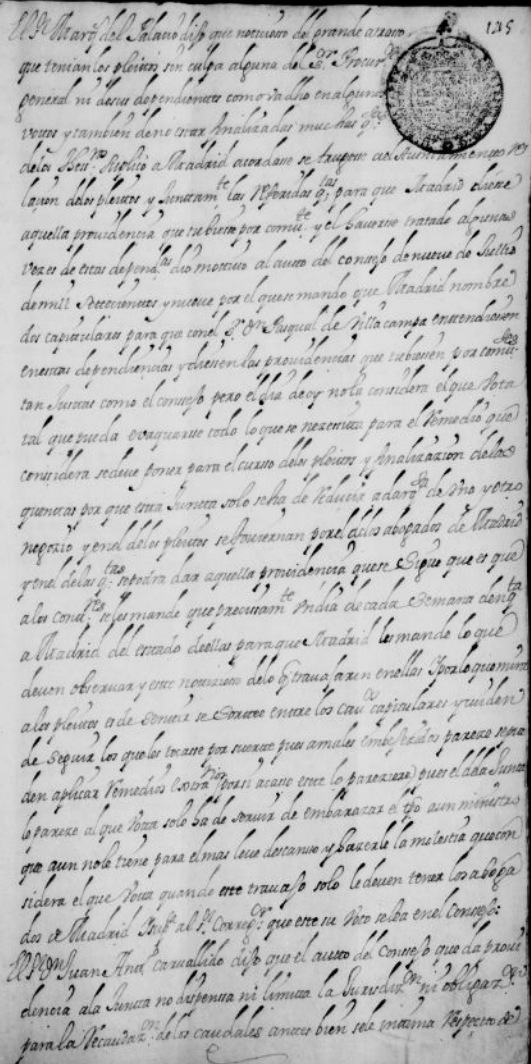 El Sr. Marqs. del Palacio dijo que noticioso del grande atraso 125
que tenian los pleitos sin culpa alguna del Sr. Procur.or
general ni de sus dependientes como va dho en algunos
votos y tambien de no estar finalizadas muchas q.tas
de los que Madrid acordase se trugese al Ayuntamiento re
lazion de los pleitos y juntam.te las referidas q.tas para que Madrid diese
aquella providencia que tubiese por comb.te y el haverse tratado algunas
vezes de estas depend.as dio motivo al auto del consejo de nueve de Jullio
de mill setecientos y nueve por el que se mando que Madrid nombre
dos capitulares para que con el Sr. Dn. Pasqual de Villacampa entendiesen
en estas dependencias y diesen las providencias que tubiesen por comb.tes
tan justas como el consejo pero el dia de oy no la considera el que vota
tal que pueda evaquarse todo lo que se nezesita para el remedio que
considera se deve poner para el curso de los pleitos y finalizazion de las
quentas por que esta Junta solo se ha de reducir a dar q.ta de uno y otro
negozio y en el de los pleitos se goviernan por el de los abogados de Madrid
y en el de las q.tas se podra dar aquella providencia que se sigue que es que
a los cont.res se les mande que precisam.te un dia de cada semana den q.ta
a Madrid del estado de ellas para que Madrid les mande lo que
deven observar y este noticioso de lo q travajaren en ellas Por lo que mira
a los pleitos es de sentir se sorteen entre los cav.os capitulares y cuiden
de seguir los que les tocase por suerte pues a males embejezidos pareze se pue
den aplicar remedios extra.rios por si acaso este lo pareziere pues el de la Junta
lo pareze al que vota solo ha de servir de embarazar el tpo a un ministro
que aun no le tiene para el mas leve descanso y hazerle la molestia que con
sidera el que vota quando este travajo solo le deven tener los aboga
dos de Madrid Sup.ca al Sr. Correg.or que este su voto se lea en el Consejo:
El Sr. Dn. Juan Ant.o Carvallido dijo que el auto del Consejo que da provi
dencia a la Junta no dispensa ni limita la Jurisdiz.on ni obligaz.on
para la recaudaz.on de los caudales antes bien se le intima respecto de